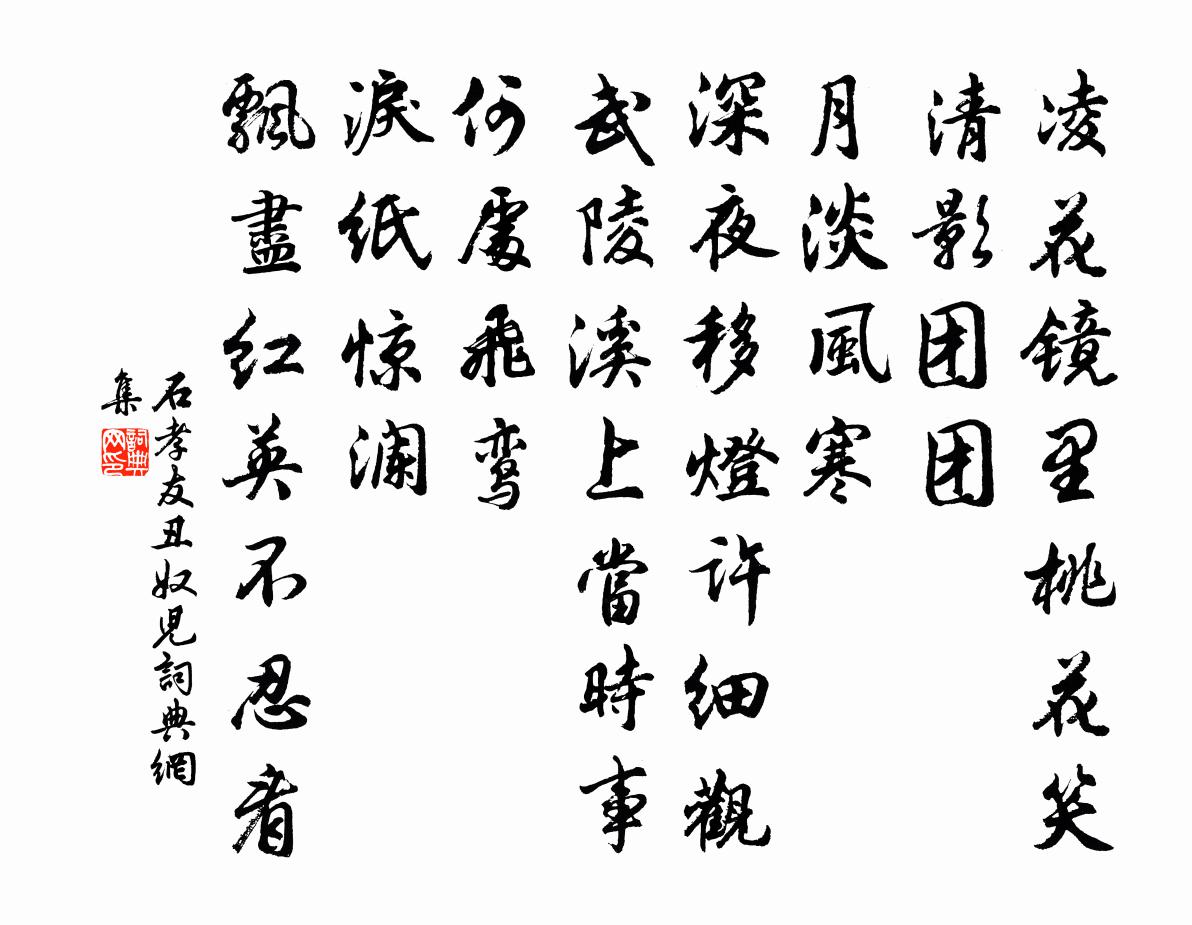 凌花镜里桃花笑
清影团团
月淡風寒
深夜移燈許细觀
武陵溪上當時事
何處飛鸾
淚纸惊澜
飄盡红英不忍看
石孝友丑奴兒詞典網
集
詞典
网印